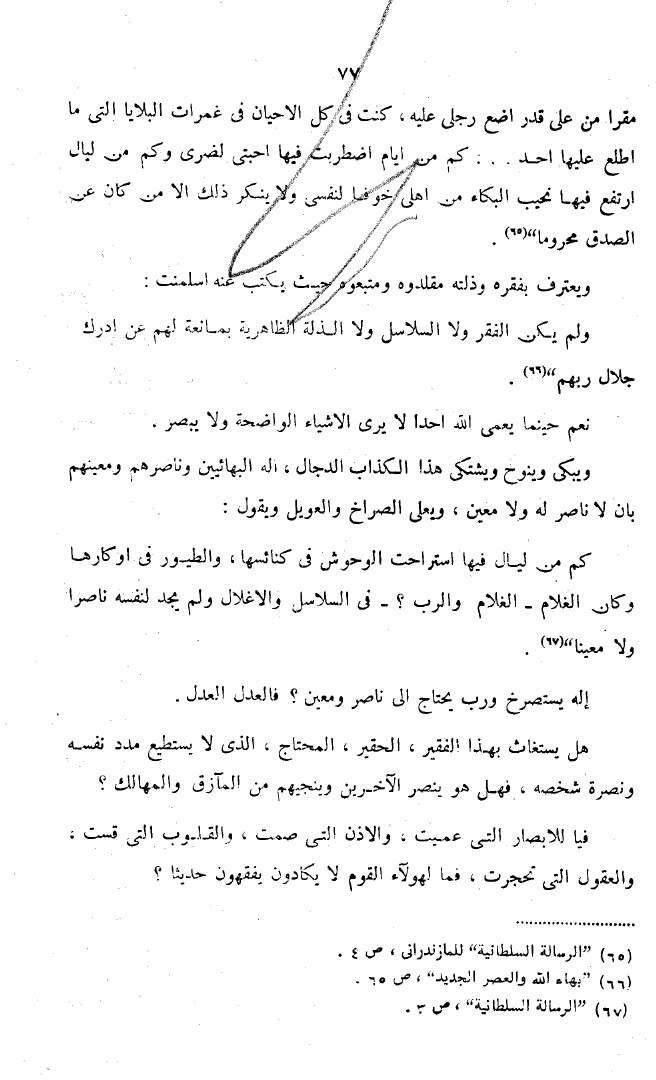 ٧٧
مقرا من على قدر اضع رجلى عليه ، كنت فى كل الاحيان فى غمرات البلايا التى ما
اطلع عليها احد . . . : كم من ايام اضطربت فيها احبتى لضرى وكم من ليال
ارتفع فيها نحيب البكاء من اهلى خوفا لنفسى ولا ينكر ذلك الا من كان عن
الصدق محروما“(٦٥) .
ويعترف بفقره وذلته مقلدوه ومتبعوه حيث يكتب عنه اسلمنت :
ولم يكن الفقر ولا السلاسل ولا الذلة الظاهرية بمانعة لهم عن ادرك
جلال ربهم“(٦٦) .
نعم حينما يعمى الله احدا لا يرى الاشياء الواضحة ولا يبصر .
ويبكى وينوح ويشتكى هذا الكذاب الدجال ، اله البهائيين وناصرهم ومعينهم
بان لا ناصر له ولا معين ، ويعلى الصراخ والعويل ويقول :
كم من ليال فيها استراحت الوحوش فى كنائسها ، والطيور فى اوكارها
وكان الغلام ـ الغلام والرب ؟ ـ فى السلاسل والاغلال ولم يجد لنفسه ناصرا
ولا معينا“(٦٧) .
إله يستصرخ ورب يحتاج الى ناصر ومعين ؟ فالعدل العدل .
هل يستغاث بهذا الفقير ، الحقير ، المحتاج ، الذى لا يستطيع مدد نفسه
ونصرة شخصه ، فهل هو ينصر الآخرين وينجيهم من المآزق والمهالك ؟
فيا للابصار التى عميت ، والاذن التى صمت ، والقلوب التى قست ،
والعقول التى تحجرت ، فما لهولآء القوم لا يكادون يفقهون حديثا ؟
(٦٥) ”الرسالة السلطانية“ للمازندرانى ، ص ٤ .
(٦٦) ”بهاء الله والعصر الجديد“ ، ص ٦٥ .
(٦٧) ”الرسالة السلطانية“ ، ص ٣ .